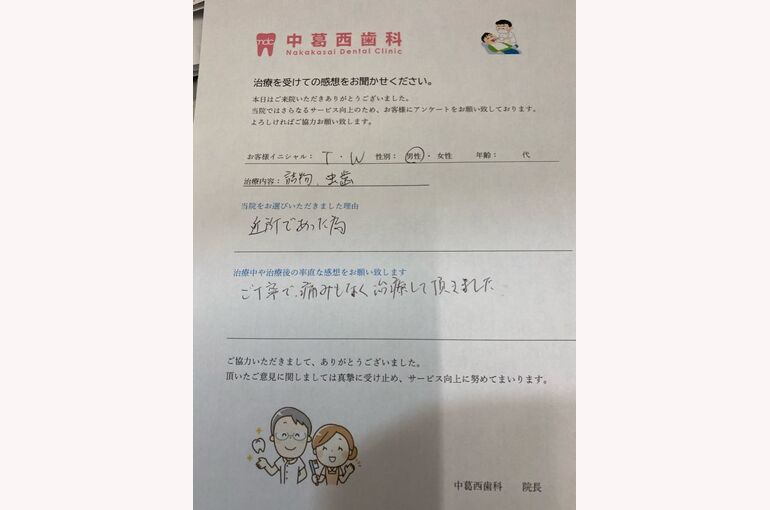 mdc
中葛西歯科
Nakakasai Dental Clinic
治療を受けての感想をお聞かせください。
本日はご来院いただきありがとうございました。
当院ではさらなるサービス向上のため、お客様にアンケートをお願い致しております。
よろしければご協力お願い致します。
お客様イニシャル： T・W 性別： 男性・女性 年齢： 代
治療内容： 詰物、虫歯
当院をお選びいただきました理由
近所であった為
治療中や治療後の率直な感想をお願い致します
ご丁寧で、痛みもなく治療して頂きました
ご協力いただきまして、ありがとうございました。
頂いたご意見に関しましては真摯に受け止め、サービス向上に努めてまいります。
中葛西歯科 院長